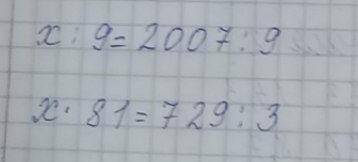 x : 9 = 2007 : 9
x · 81 = 729 : 3